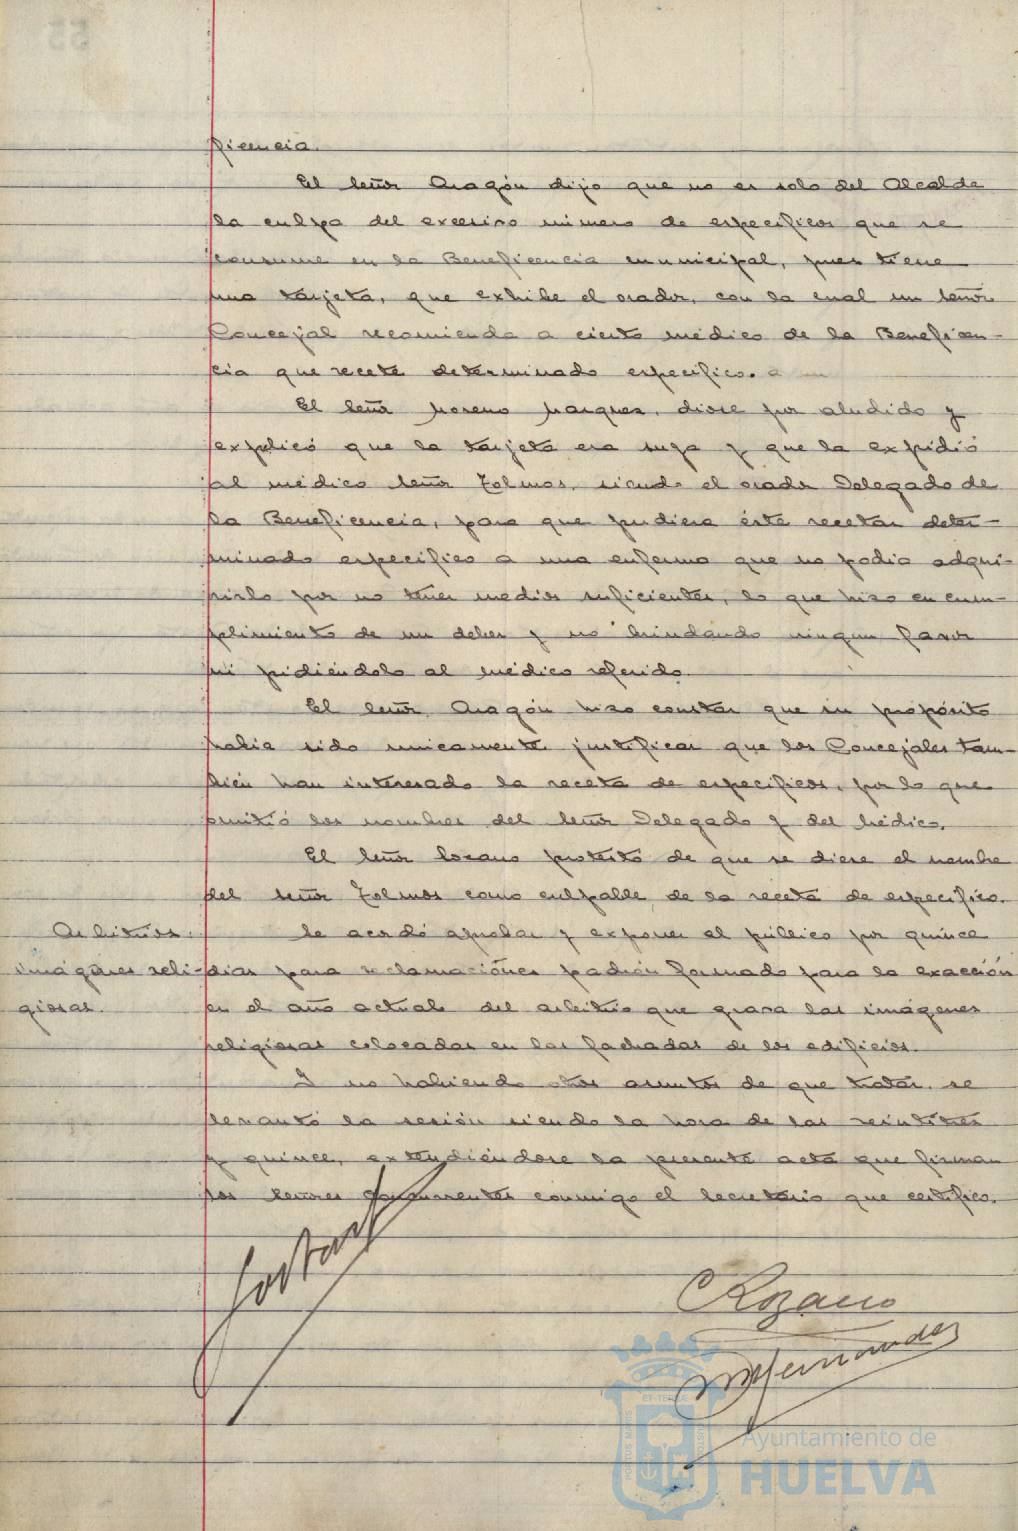 ficencia.
El señor Aragón dijo que no es solo del Alcalde
la culpa del excesivo número de específicos que se
consume en la Beneficencia municipal, pues tiene
una tarjeta, que exhibe el orador, con la cual un señor
Concejal recomienda a cierto médico de la Beneficen-
cia que recete determinado específico.
El señor Moreno Marquez, diose por aludido y
explicó que la tarjeta era suya y que la expidió
al médico señor Tolmos, siendo el orador Delegado de
la Beneficencia, para que pudiera éste recetar deter-
minado específico a una enferma que no podia adqui-
rirlo por no tener medios suficientes, lo que hizo en cum-
plimiento de un deber y no brindando ningun favor
ni pidiéndolo al médico referido.
El señor Aragón hizo constar que su propósito
habia sido unicamente justificar que los Concejales tam-
bién han interesado la receta de específicos, por lo que
omitió los nombres del señor Delegado y del Médico.
El señor Lozano protestó de que se diese el nombre
del señor Tolmos como culpable de la receta de específico.
Arbitrios:
imágenes reli-
giosas.
Se acordó aprobar y exponer al público por quince
dias para reclamaciónes padrón formado para la exacción
en el año actual del arbitrio que grava las imágenes
religiosas colocadas en las fachadas de los edificios.
Y no habiendo otros asuntos de que tratar, se
levantó la sesión siendo la hora de las veintitres
y quince, extendiéndose la presente acta que firman
los señores concurrentes conmigo el Secretario que certifico.
Rozano
Hernandez
PORTUS MARIS
ET TERRAE
CUSTODIA
Ayuntamiento de
HUELVA
55